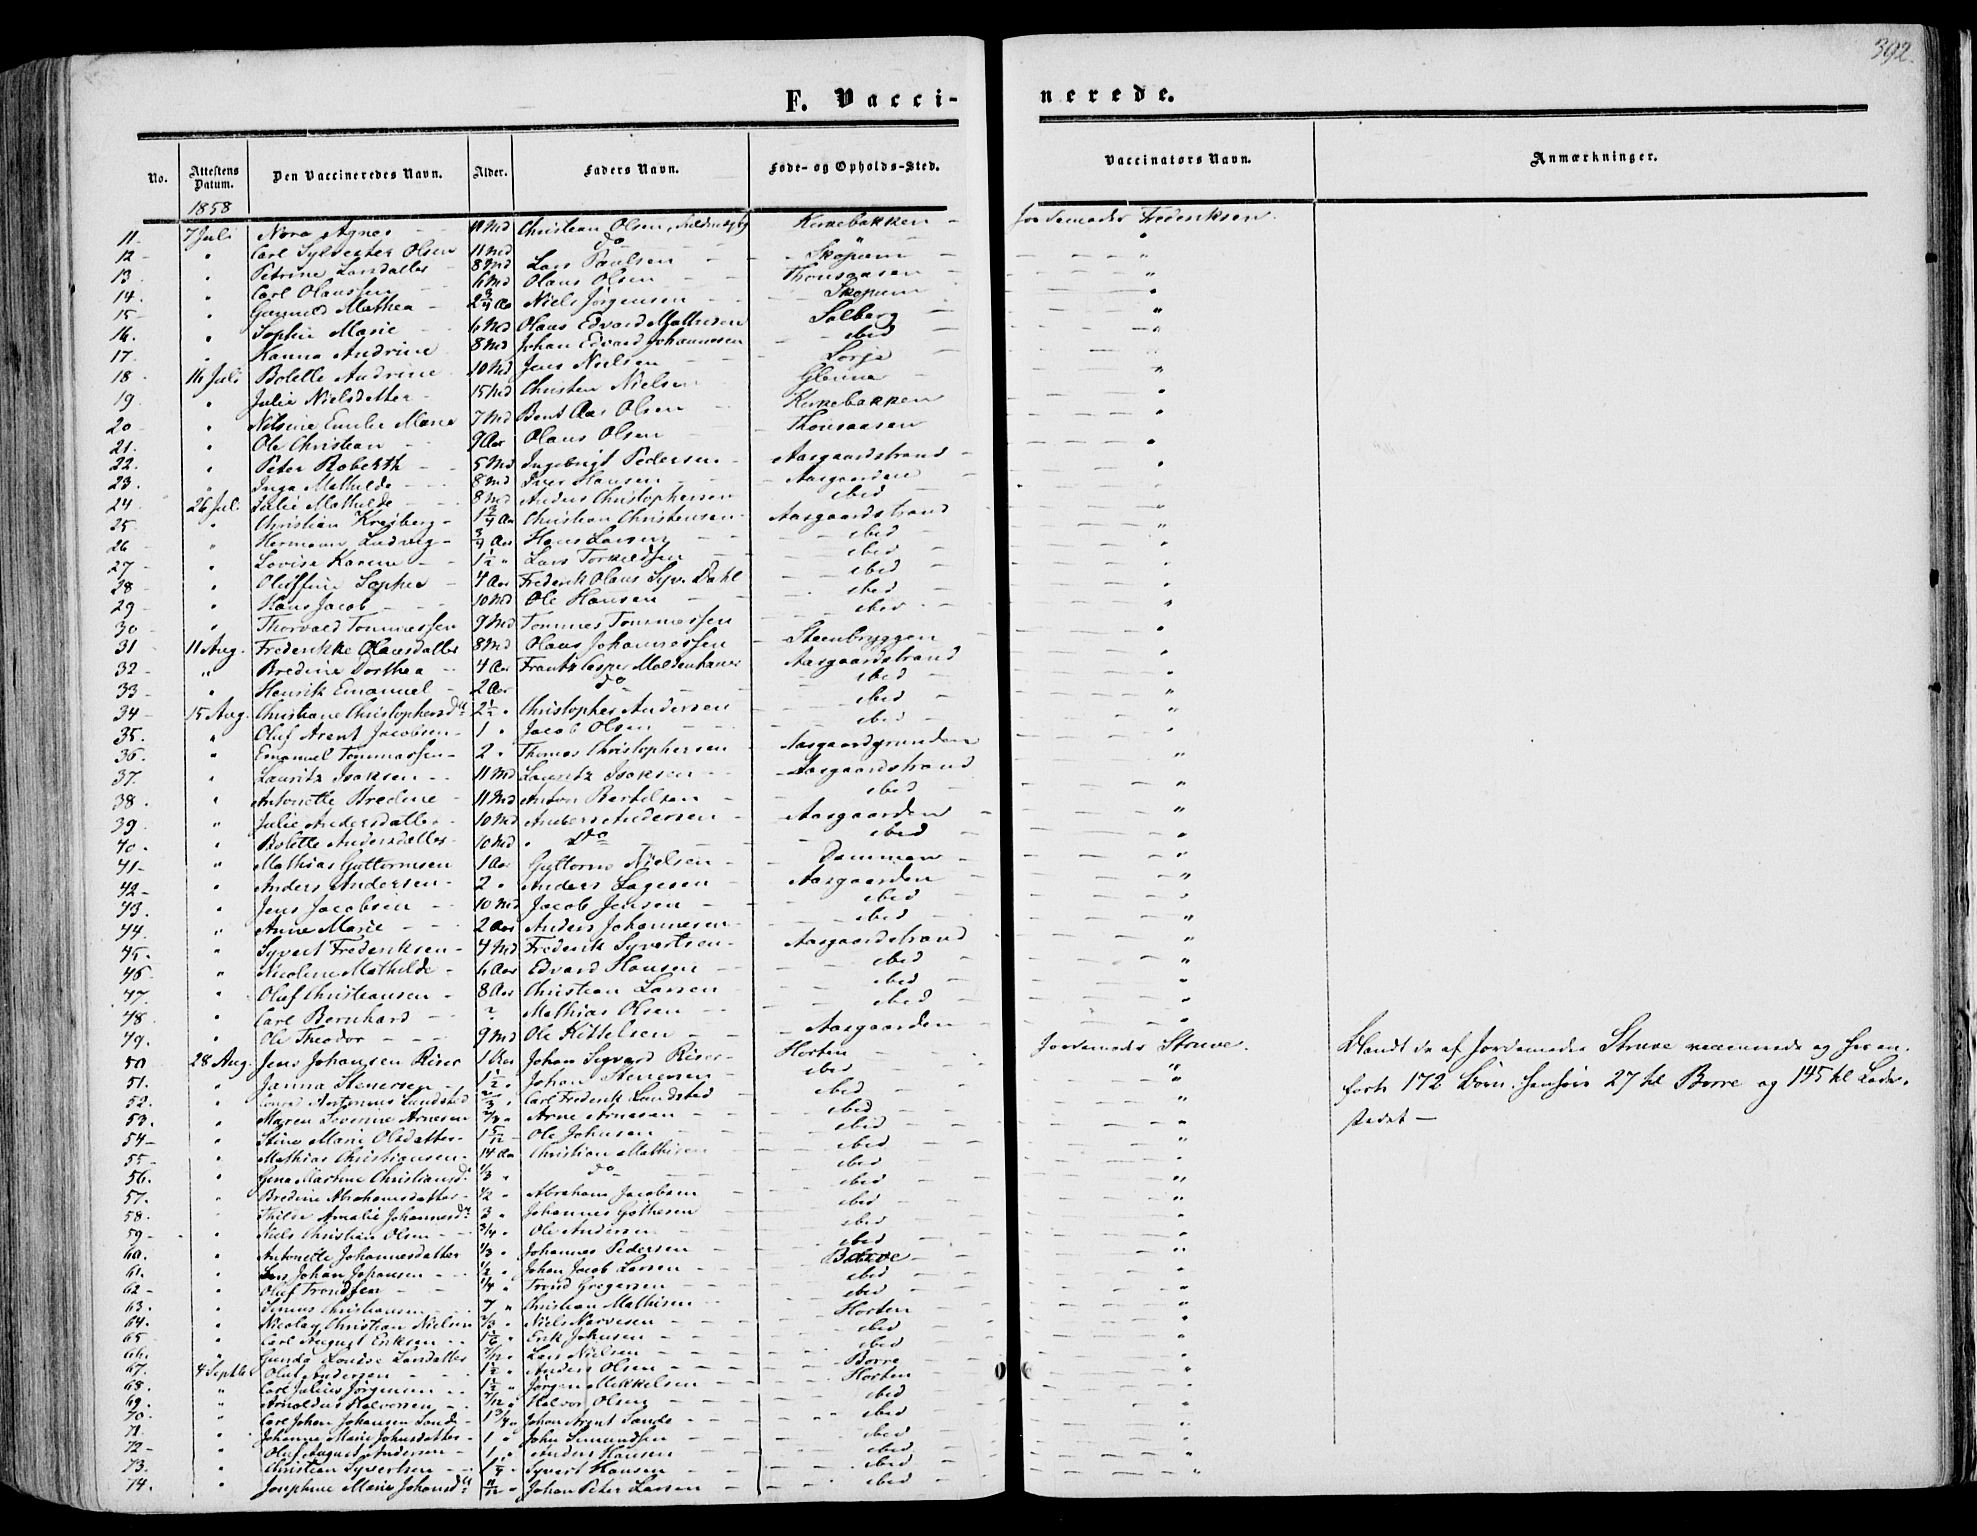 392.
F. Vacci- nerede.
No. Attestens Datum. Den Vaccineredes Navn. Alder. Faders Navn. Føde- og Opholds-Sted. Vaccinators Navn. Anmærkninger.
1858
11 - 7 Juli Nora Agnes - 11 Md Christian Olsen, Kirkebakken - Jordemoder Frederiksen.
12 - " Carl Sylvester Olsen 11 Md do "
13 - " Petrine Larsdatter - 8 Md Lars Paulsen - - Skopum - "
14. " Carl Olaussen 6 Md Olaus Olsen - Thonsaasen - "
15 - " Gunnild Mathea - 2 3/4 Aar Niels Jørgensen - - Skopum - "
16. " Sophie Marie - 6 Md Olaus Edvard Mathisen Solberg - "
17. " Hanna Andrine 8 Md Johan Edvard Johannesen ibid - "
18 - 16 Juli Bolette Andrine 10 Md Jens Nielsen - Sorja - "
19. " Julie Nielsdatter - 15 Md Christen Nielsen Glenna - "
20 - " Nilsine Emilie Marie 7 Md Bent Aas Olsen - Kirkebakken "
21. " Ole Christian - 9 Aar Olaus Olsen - Thonsaasen "
22. " Peter Roberth - - 5 Md Ingebrigt Pedersen - Aasgaardstrand - "
23. " Inga Mathilde - - 8 Md Iver Hansen - - Aasgaarden - "
24 - 26 Juli Julie Mathilde - - 8 Md Anders Christophersen ibid - "
25 - " Christian Krejberg - 1 3/4 Aar Christian Christensen - Aasgaardstrand - "
26 - " Hermann Ludvig - 3/4 Aar Hans Larsen - - ibid - "
27 - " Lovise Karine - - 1 1/2 " Lars Torkeldsen - ibid - "
28 - " Oluffine Sophie - 4 Aar Frederik Olaus Syv. Dahl ibid - "
29 - " Hans Jacob - - - 10 Md Ole Hansen - - ibid - "
30 - " Thorvald Tommessen 9 Md Tommes Tommessen ibid - "
31 - 11 Aug. Frederikke Olausdatter 8 Md Olaus Johannessen - Steenbryggen - "
32 - " Bredine Dorthea - - 4 Aar Frantz Casper Moldenhauer Aasgaardstrand "
33 - " Henrik Emanuel - 2 Aar do - ibid - "
34 - 15 Aug. Christiane Christophersdtr 2 1/2 " Christopher Andersen ibid - "
35. " Oluf Arent Jacobsen - 1 " Jacob Olsen - - ibid - "
36. " Emanuel Tommassen - 2 " Thomas Christophersen - Aasgaardgrunden "
37. " Lauritz Isaksen - - 11 Md Lauritz Isaksen - - Aasgaardstrand "
38. " Antonette Bredine - 11 Md Anton Bertelsen - ibid - "
39. " Julie Andersdatter - 10 Md Anders Andersen - Aasgaarden - "
40. " Bolette Andersdatter 10 Md " do ibid - "
41 - " Mathias Guttormsen 1 Aar Guttorm Nielsen - - Dammen - "
42 - " Anders Andersen - 2 " Anders Lagesen - - Aasgaarden - "
43. " Jens Jacobsen - - 10 Md Jacob Jensen - - ibid - "
44. " Anne Marie - - - 2 Aar Anders Johannesen - ibid - "
45. " Syvert Frederiksen - 4 Md Frederik Syvertsen - Aasgaardstrand "
46 - " Nicoline Mathilde - 6 Aar Edvard Hansen - - ibid - "
47. " Oluf Christiansen - 8 Aar Christian Larsen - ibid - "
48 " Carl Bernhard - - ? Mathias Olsen - - ibid - "
49. " Ole Theodor - - - 9 Md Ole Kittelsen - - Aasgaarden - "
50 - 28 Aug. Jens Johansen Riser 1 Aar Johan Sigvard Riser - Horten - Jordemoder Struve.
51. " Janna Stenersen - - 1 1/2 " Johan Stenersen - ibid "
52. " Antonius Lundsted 2/3 " Carl Frederik Lundsted ibid "
53. " Maren Severine Arnesen 2/3 " Arne Arnesen - ibid "
54 - " Stine Marie Olsdatter - 1 5/12 - Ole Johnsen - - ibid "
55 - " Mathias Christiansen - 14 Aar Christian Mathisen ibid "
56. " Gina Martine Christiansdr 1/3 " do ibid "
57. " Bredine Abrahamsdatter - 1/2 " Abraham Jacobsen ibid "
58. " Hilde Amalie Johannesdr 2 " Johannes Gothesen ibid "
59 - " Niels Christian Olsen - - 3/4 " Ole Andersen - ibid "
60. " Antonette Johannesdatter 1/3 " Johannes Pedersen - ibid "
61. " Lars Johan Johansen - - 1/2 " Johan Jacob Larsen - Borre "
62 - " Oluf Trondsen - - 1/4 " Trond Gregersen - - ibid "
63. " Simus Christiansen - - 7 " Christian Mathisen - - ibid "
64. " Nicolay Christian Nielsen 2/3 " Niels Narvesen - - Horten "
65 - " Carl August Eriksen - - 1 1/6 " Erik Johnsen - - ibid "
66. " Gunda Lovise Larsdatter 7/12 " Lars Nielsen - - ibid "
67. 4 Septbr Oluf Andersen - - - 1 1/2 " Anders Olsen - - Borre "
68. " Carl Julius Jørgensen - - 1 1/2 " Jørgen Mikkelsen - - Horten "
69. " Arnoldus Halvorsen - - 7/12 " Halvor Olsen - - ibid "
70. " Carl Johan Johansen Sande - 1 3/4 " Johan Arent Sande - ibid "
71. " Johanne Marie Johnsdatter - 1 " John Simundsen ibid "
72 - " Oluf August Andersen - 1 " Anders Hansen ibid "
73. " Christian Syvertsen - - 1 1/4 " Syvert Hansen - - ibid "
74. " Josephine Marie Johansdtr 11/12 " Johan Peter Larsen - - ibid "
Blandt de af Jordemoder Struve vaccinerede og her an-
førte 172 Børn henhøre 27 til Borre og 145 til Lade-
stedet -